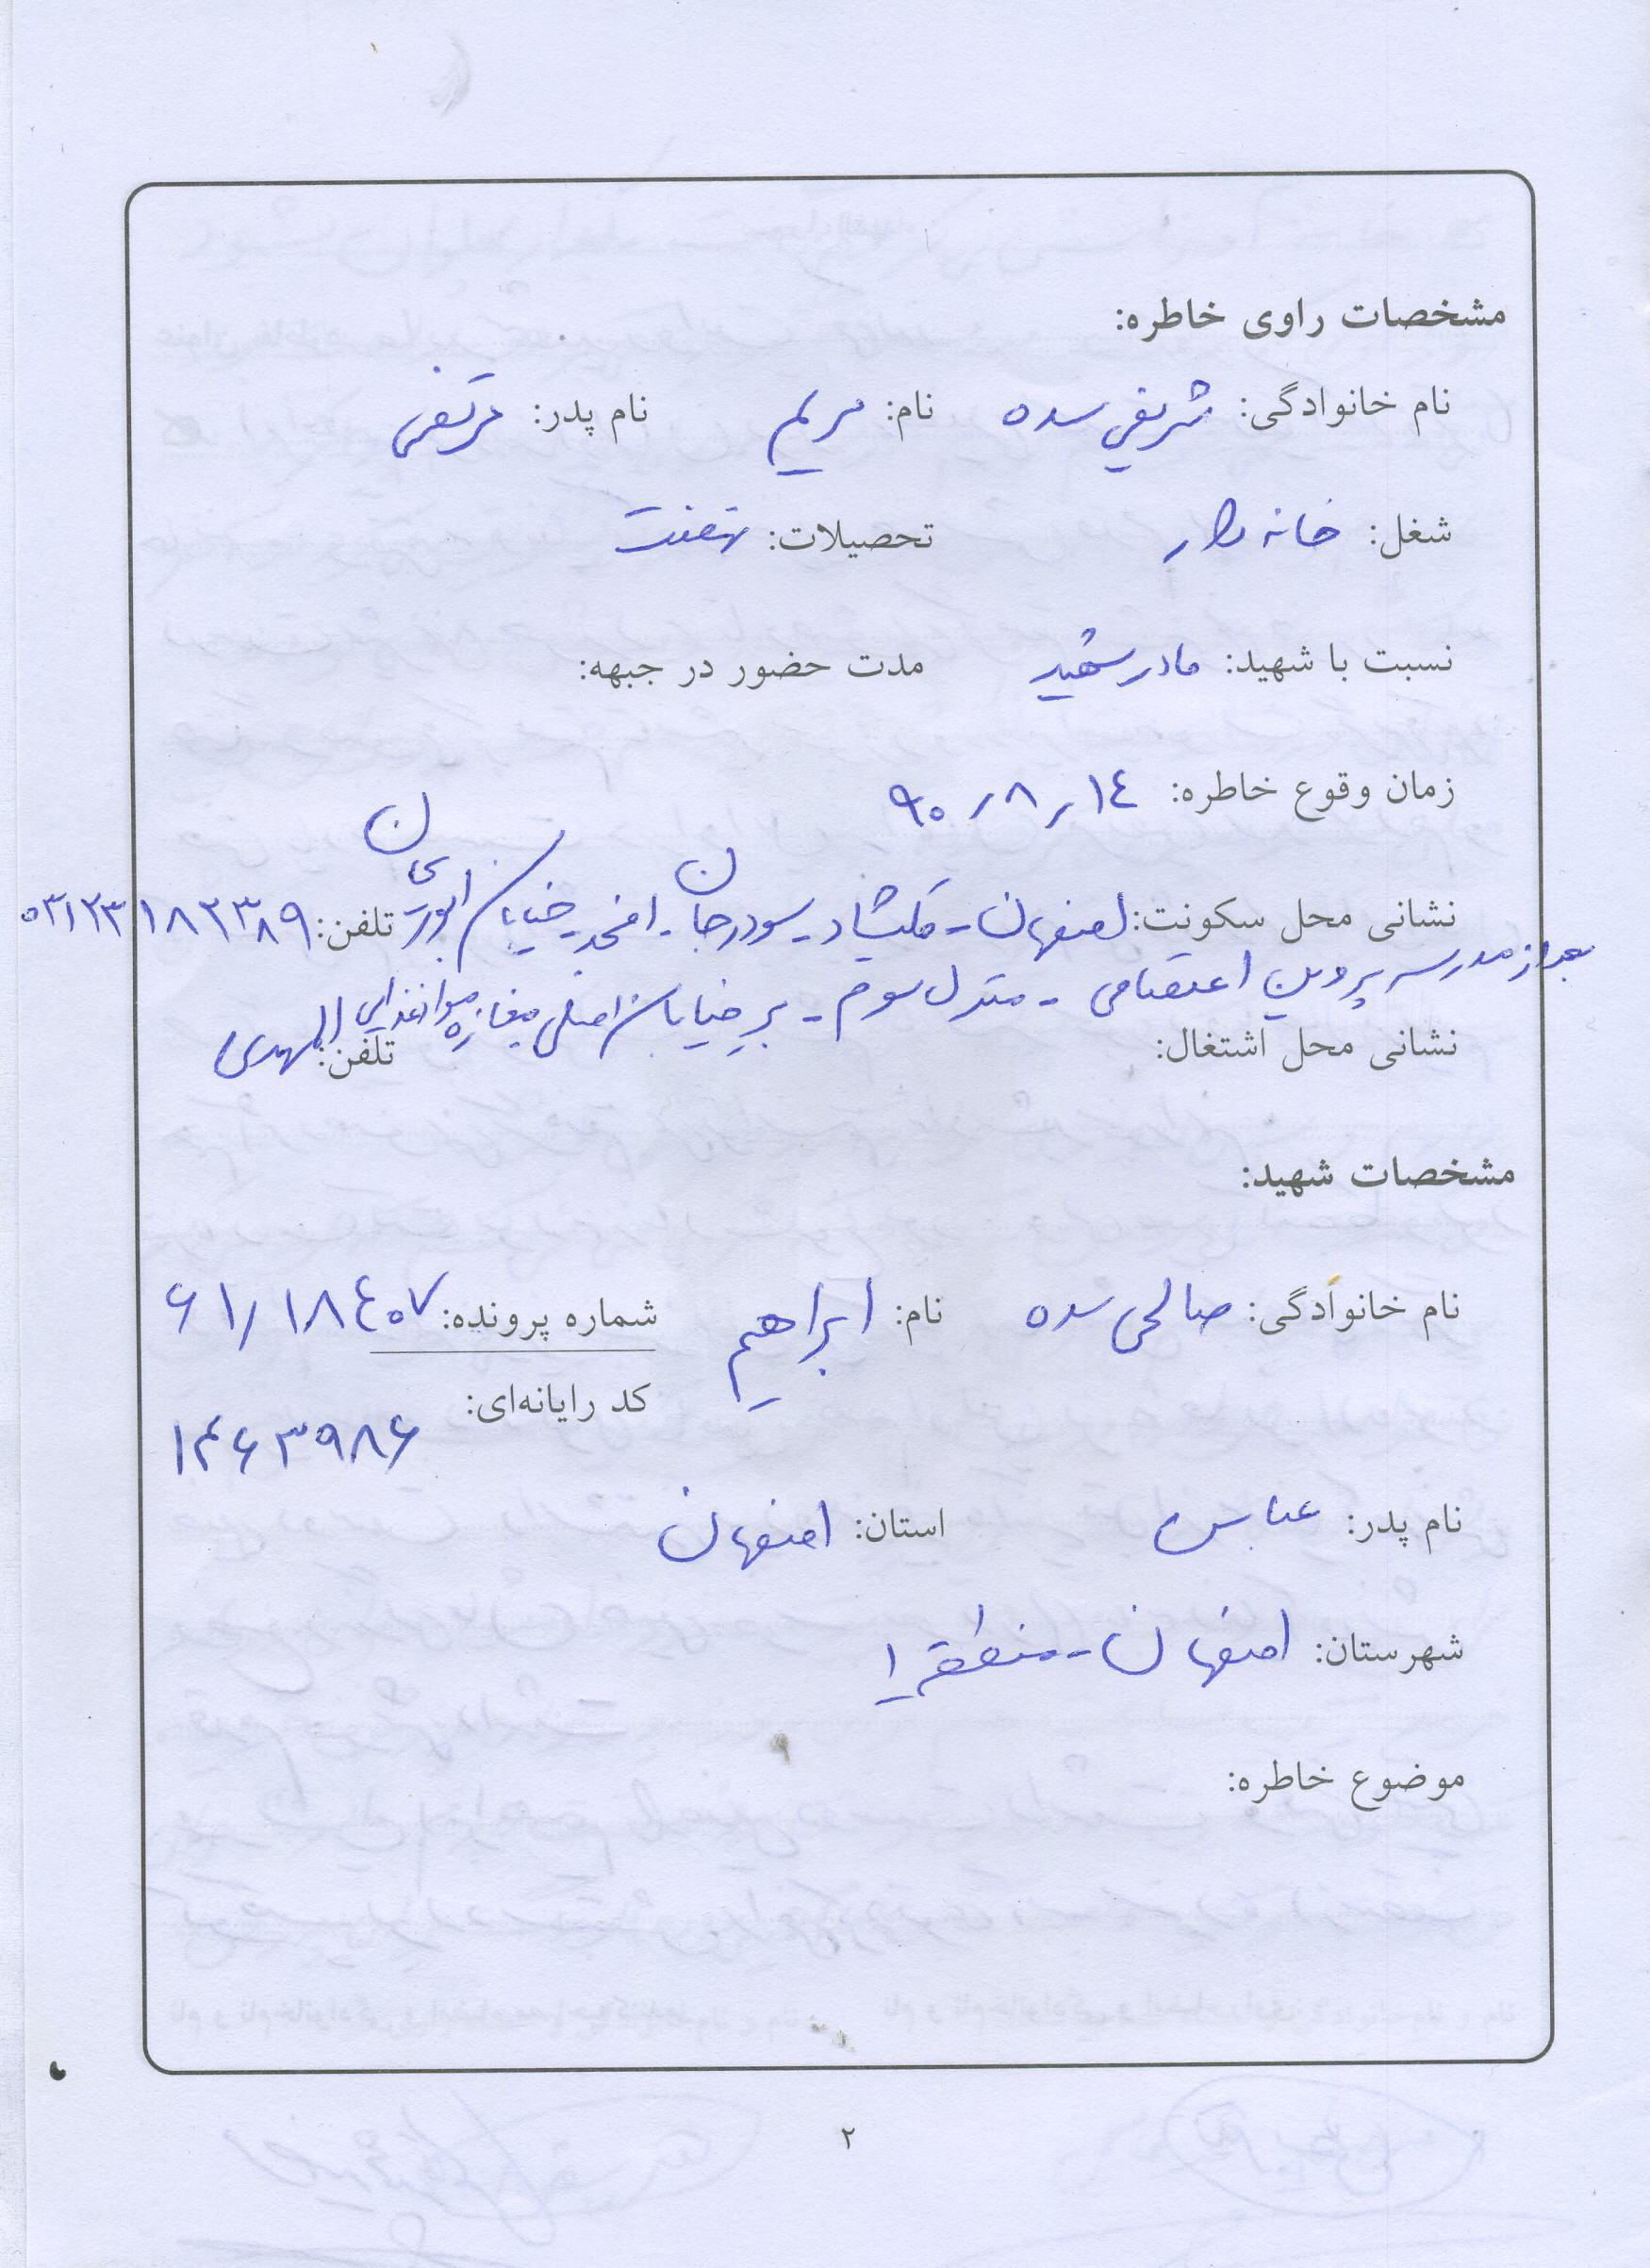 مشخصات راوی خاطره:
نام خانوادگی: شریفی سده نام: مریم نام پدر: مرتضی
شغل: خانه دار تحصیلات: نهضت
نسبت با شهید: مادر شهید مدت حضور در جبهه:
زمان وقوع خاطره: ۹۰/۸/۱٤
نشانی محل سکونت: اصفهان - فلکشاد - سودرجان - خیابان تلفن: ۰۳۱۲۳۱۸۲۳۸۹
بعد از مدرسه پروین اعتصامی - منزل سوم - بر خیابان اصلی مغازه مواد غذایی المهدی
نشانی محل اشتغال: تلفن:
مشخصات شهید:
نام خانوادگی: صالحی سده نام: ابراهیم شماره پرونده: ۶۱/۱۸٤۰۷
کد رایانه‌ای: ۱۴۶۳۹۸۶
نام پدر: عباس استان: اصفهان
شهرستان: اصفهان - منطقه ۱
موضوع خاطره:
۲